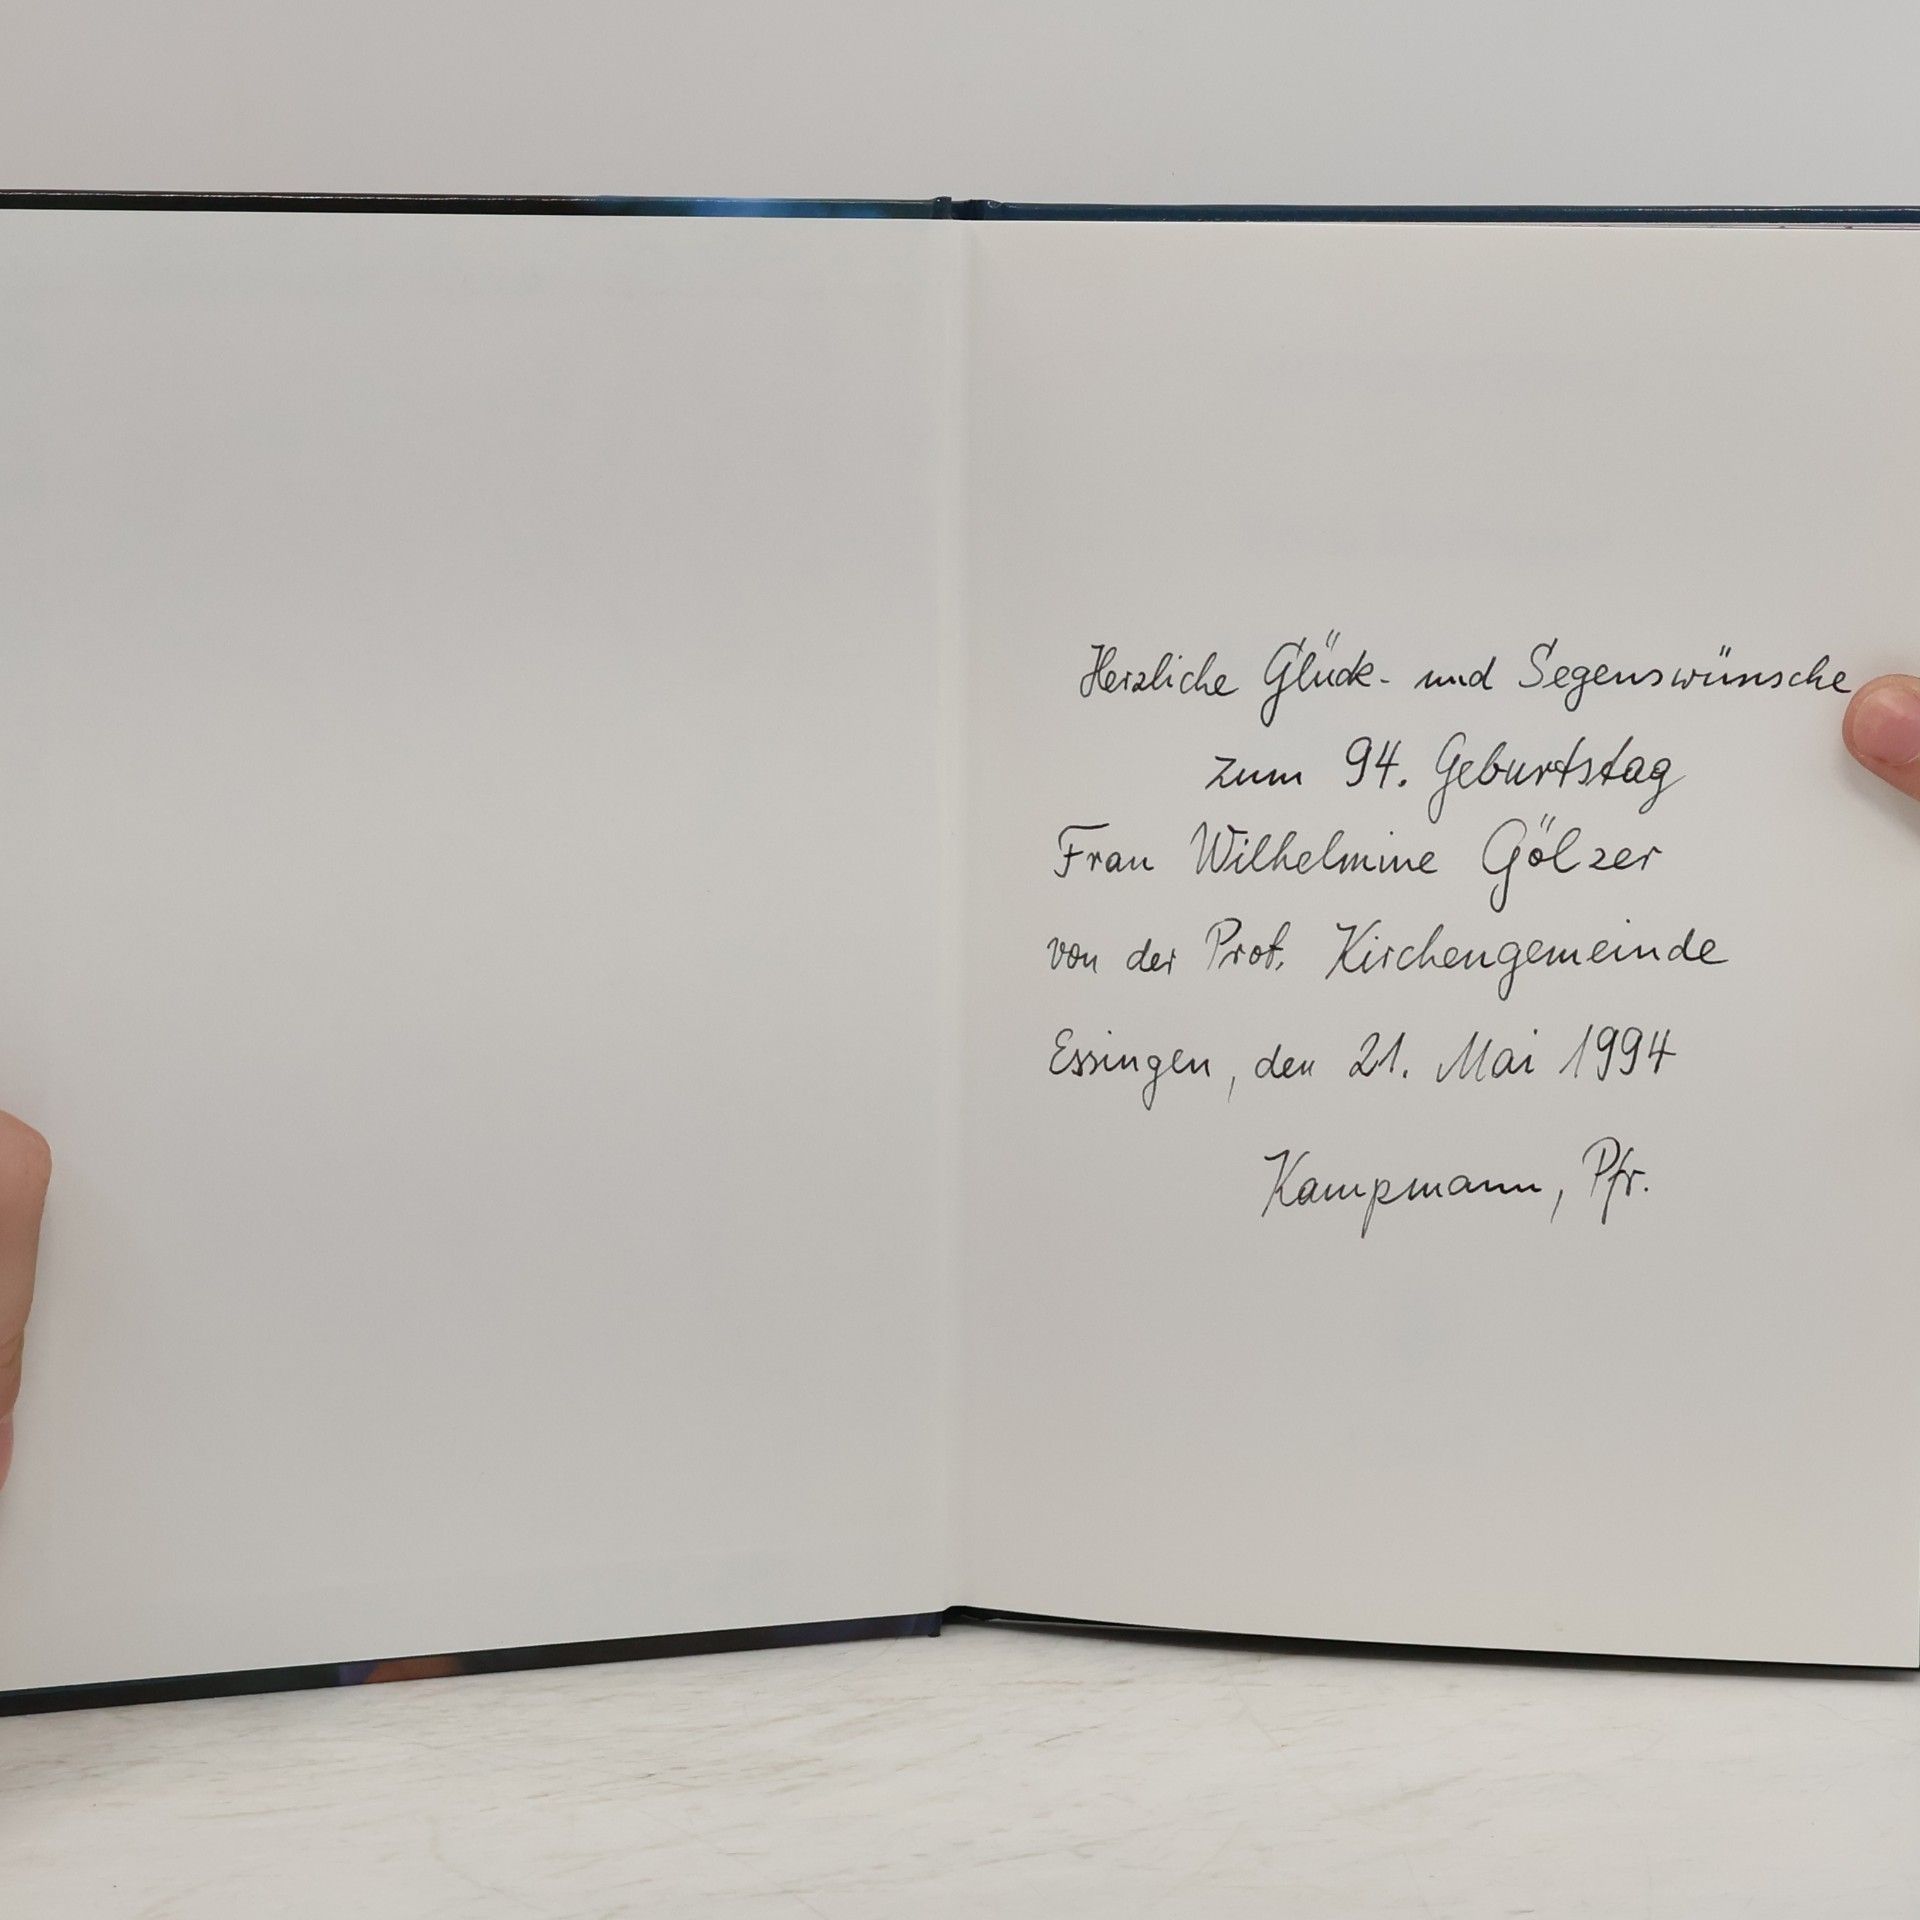 Herzliche Glück- und Segenswünsche
zum 94. Geburtstag
Frau Wilhelmine Gölzer
von der Prot. Kirchengemeinde
Essingen, den 21. Mai 1994
Kampmann, Pfr.